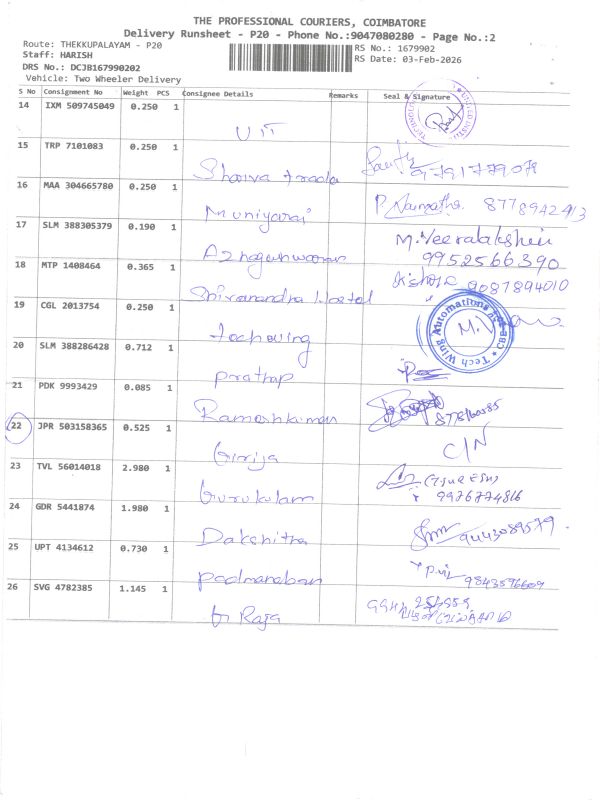 THE PROFESSIONAL COURIERS, COIMBATORE
Delivery Runsheet - P20 - Phone No.:9047080280 - Page No.:2
Route: THEKKUPALAYAM - P20
RS No.: 1679902
Staff: HARISH
RS Date: 03-Feb-2026
DRS No.: DCJB167990202
Vehicle: Two Wheeler Delivery
S No Consignment No Weight PCS Consignee Details Remarks Seal & Signature
14 IXM 509745049 0.250 1
15 TRP 7101083 0.250 1
16 MAA 304665780 0.250 1
Muniyarai P. 8778942413
17 SLM 388305379 0.190 1
Azhageshwaran M.Veeralakshmi
9952566390
18 MTP 1408464 0.365 1
Shivanandha Hostel Kishore 9087894010
19 CGL 2013754 0.250 1
techwing Tech Wing Automations CBE M.V
20 SLM 388286428 0.712 1
Prathap
21 PDK 9993429 0.085 1
Rameshkumar
22 JPR 503158365 0.525 1
Girija C/N
23 TVL 56014018 2.980 1
Gurukulam 9976774816
24 GDR 5441874 1.980 1
Dakshitha 9443089579
25 UPT 4134612 0.730 1
Padmanaban 9843576609
26 SVG 4782385 1.145 1
Raja